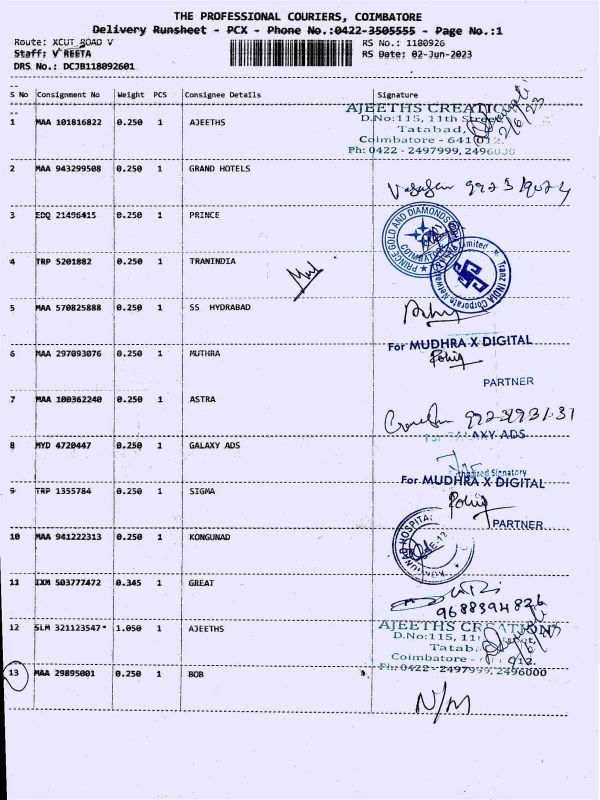 THE PROFESSIONAL COURIERS, COIMBATORE
Delivery Runsheet - PCX - Phone No.:0422-3505555 - Page No.:1
Route: XCUT ROAD V
RS No.: 1180926
Staff: V REETA
RS Date: 02-Jun-2023
DRS No.: DCJB118092601
S No Consignment No Weight PCS Consignee Details Signature
1 MAA 101816822 0.250 1 AJEETHS
AJEETHS CREATIONS
D.No:115, 11th Street,
Tatabad,
Coimbatore - 641 012.
Ph: 0422 - 2497999, 2496000
2/6/23
2 MAA 943299508 0.250 1 GRAND HOTELS
3 EDQ 21496415 0.250 1 PRINCE
PRINCE GOLD AND DIAMONDS
COIMBATORE
4 TRP 5201882 0.250 1 TRANINDIA
Tranz INDIA Corporate Network Limited
5 MAA 570825888 0.250 1 SS HYDRABAD
6 MAA 297093076 0.250 1 MUTHRA
For MUDHRA X DIGITAL
PARTNER
7 MAA 100362240 0.250 1 ASTRA
8 MYD 4720447 0.250 1 GALAXY ADS
For GALAXY ADS
Authorised Signatory
9 TRP 1355784 0.250 1 SIGMA
For MUDHRA X DIGITAL
PARTNER
10 MAA 941222313 0.250 1 KONGUNAD
KONGUNAD HOSPITAL
11 IXM 503777472 0.345 1 GREAT
9688394826
12 SLM 321123547 1.050 1 AJEETHS
AJEETHS CREATIONS
D.No:115, 11th Street,
Tatabad,
Coimbatore - 641 012.
Ph: 0422-2497999, 2496000
13 MAA 29895001 0.250 1 BOB
N/M